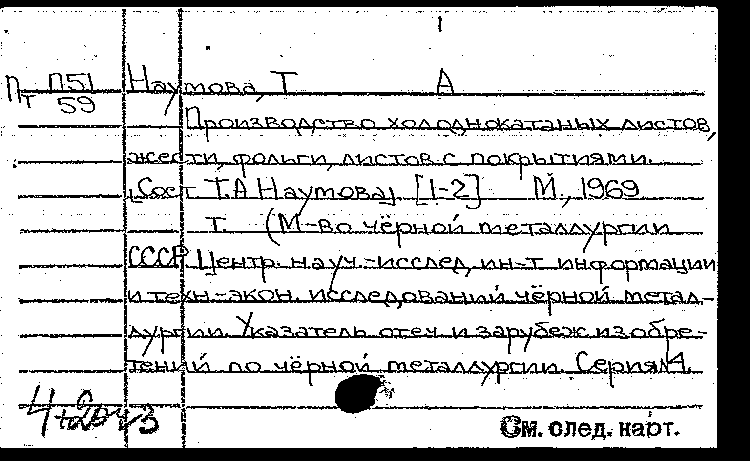 Пт П51 Наумова, Т А
59
Производство холоднокатаных листов,
жести, фольги, листов с покрытиями.
[Сост Т.А Наумова] [1-2] М., 1969
т. (М-во чёрной металлургии
СССР Центр. науч.-исслед, ин-т информации
и техн-экон. исследований чёрной метал-
лургии Указатель отеч и зарубеж изобре-
тений по чёрной металлургии Серия 14.
См. след. карт.